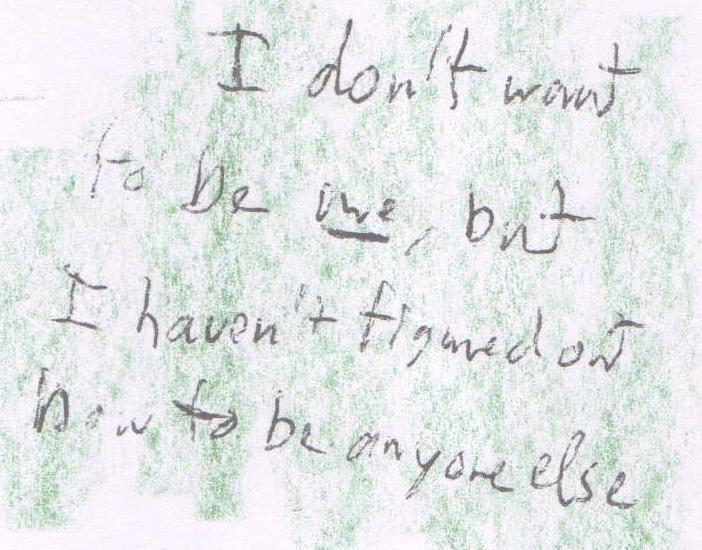 I don't want
to be me, but
I haven't figured out
how to be anyone else